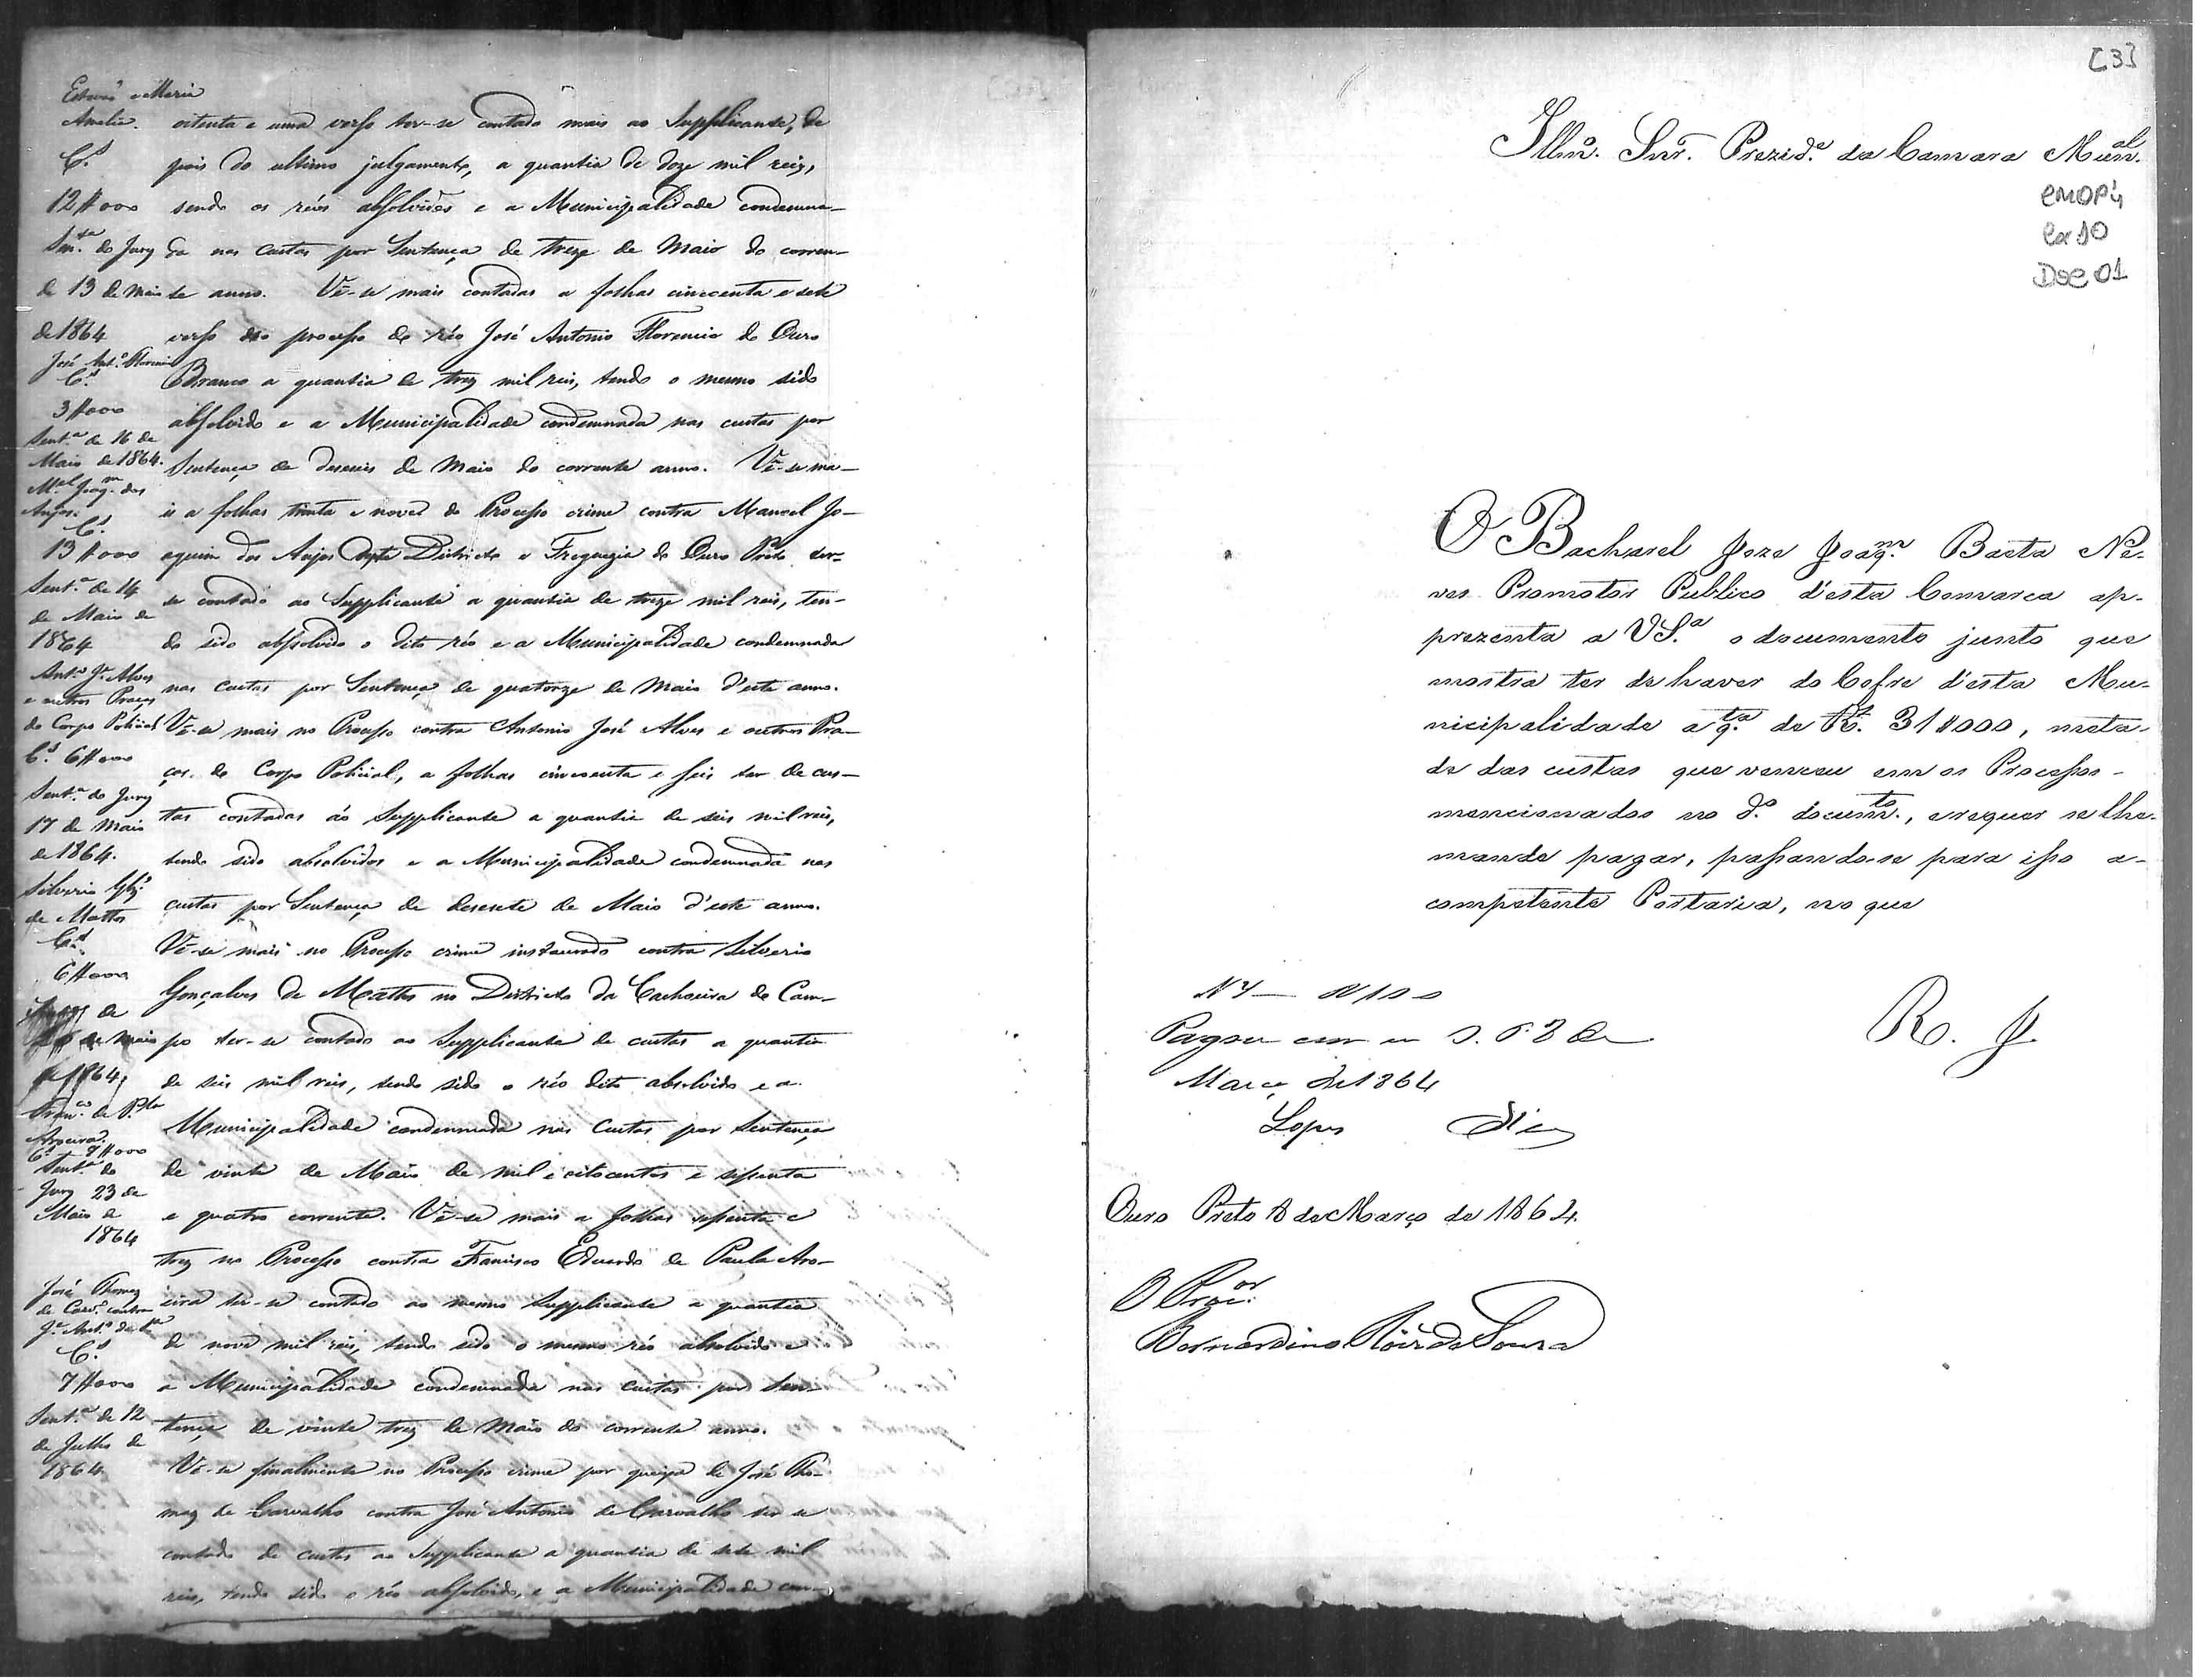 Estevaõ e Maria
Amelia.
C.s
12#000
Sen.ta do Jury
de 13 de Maio
de 1864
José Ant.o Florencio
C.s
3#000
Sent.a de 16 de
Maio de 1864.
M.el Joaq.m dos
Anjos.
C.s
13#000
Sent.a de 14
de Maio de
1864
Ant.o J.e Alves
e outros Praças
do Corpo Policial
C.s 6#000
Sent.a do Jury
17 de Maio
de 1864.
Silverio Glz'
de Mattos
C.s
6#000
de
de Maio
de 1864
Fran.co de P.la
Aroeira.
C.s 9#000
Sent.a do
Jury 23 de
Maio de
1864
José Thomaz
de Carv.o contra
J.e Ant.o de
C.s
7#000
Sent.a de 12
de Julho de
1864
oitenta e uma verso ter-se contado mais ao Supplicante, de
pois do ultimo julgamento, a quantia de doze mil reis,
sendo os réos absolvidos e a Municipalidade condemna-
da nas custas por Sentença de treze de Maio do corren-
te anno. Vê-se mais contadas a folhas cincoenta e sete
verso do processo do réo José Antonio Florencio do Ouro
Branco a quantia de trez mil reis, tendo o mesmo sido
absolvido e a Municipalidade condemnada nas custas por
Sentença de deseseis de Maio do corrente anno. Vê-se ma-
is a folhas trinta e nove do Processo crime contra Manoel Jo-
aquim dos Anjos deste Districto e Freguezia do Ouro Preto ter-
se contado ao Supplicante a quantia de treze mil reis, ten-
do sido absolvido o dito réo e a Municipalidade condemnada
nas custas por Sentença de quatorze de Maio d'este anno.
Vê-se mais no Processo contra Antonio José Alves e outros Pra-
ças do Corpo Policial, a folhas cincoenta e seis ter de cus-
tas contadas ao Supplicante a quantia de seis mil reis,
tendo sido absolvidos e a Municipalidade condemnada nas
custas por Sentença de desesete de Maio d'este anno.
Vê-se mais no Processo crime instaurado contra Silverio
Gonçalves de Mattos no Districto da Cachoeira do Cam-
po ter-se contado ao Supplicante de custas a quantia
de seis mil reis, tendo sido o réo dito absolvido e a
Municipalidade condemnada nas Custas por Sentença
de vinte de Maio de mil e oitocentos e sessenta
e quatro corrente. Vê-se mais a folhas sessenta e
trez no Processo contra Francisco Eduardo de Paula Aro-
eira ter-se contado ao mesmo Supplicante a quantia
de nove mil reis, tendo sido o mesmo réo absolvido e
a Municipalidade condemnada nas custas por Sen-
tença de vinte trez de Maio do corrente anno.
Vê-se finalmente no Processo crime por queixa de José Tho-
maz de Carvalho contra José Antonio de Carvalho ter-se
contado de custas ao Supplicante a quantia de sete mil
reis, tendo sido o réo absolvido, e a Municipalidade con-
[3]
Illmo. Snr. Prezid.e da Camara Mun.al
CMOP
Cx 10
Doc 01
O Bacharel Joze Joaq.m Baeta Ne-
ves Promotor Publico d'esta Comarca ap-
prezenta a VS.a o documento junto que
mostra ter de haver do Cofre d'esta Mu-
nicipalidade a q.ta de R.s 31#000, meta-
de das custas que venceu em os Processos
mencionados no d.o docum.to, e requer se lhe
mande pagar, passando-se para isso a
competente Portaria, no que
R. J.
Pagou
Março de 1864
Lopes
Ouro Preto 8 de Março de 1864.
O Proc.or
Bernardino Róiz de Souza